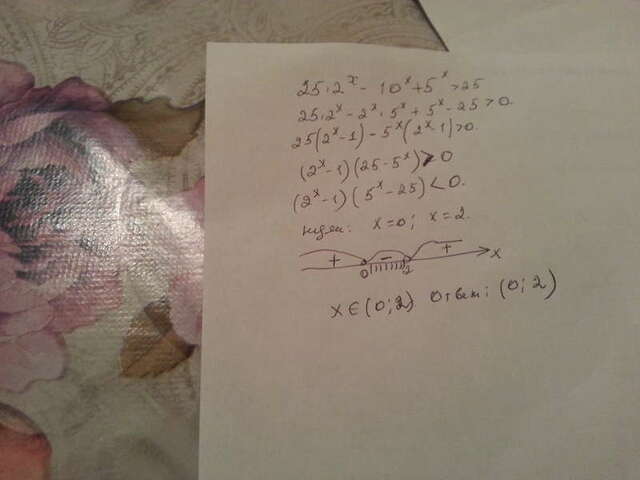 25·2^x - 10^x + 5^x > 25
25·2^x - 2^x · 5^x + 5^x - 25 > 0.
25(2^x - 1) - 5^x(2^x - 1) > 0.
(2^x - 1)(25 - 5^x) > 0
(2^x - 1)(5^x - 25) < 0.
нули: x = 0; x = 2.
+ - + x
0 2
x ∈ (0; 2) Ответ: (0; 2)